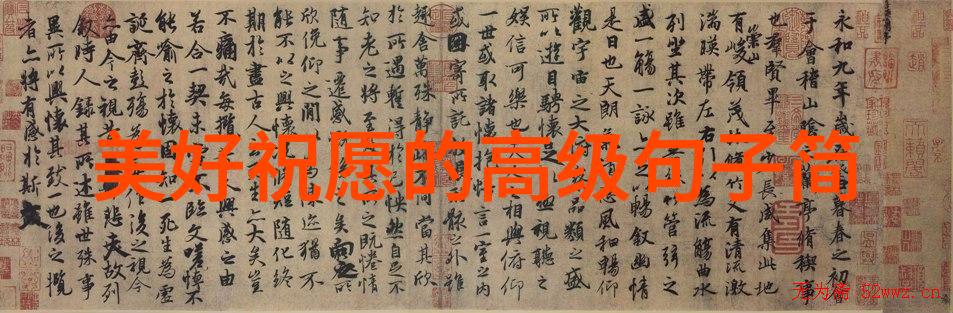 美好祝愿的高级句子简
永和九年歲在癸丑暮春之初會
于會稽山陰之蘭亭脩稧事
也群賢畢至少長咸集此地
有崇山峻領茂林脩竹又有清流激
湍暎帶左右引以為流觴曲水
列坐其次雖無竹管弦之
盛一觴一詠以暢敘幽情
是日也天朗惠風和暢仰
觀宇宙之大品類之盛
所以遊目騁懷足極視聽之
娛信可樂也相與俯仰
一世或取諸懷抱悟言一室之內
或因寄所託骸之外雖
趣舍萬殊靜同當其欣
於所遇暫得於己怏然自足不
知老之將至之既惓情
隨事遷感矣向之所
欣俛仰之間以迹猶不
能不以之興懷短隨化終
期於盡古人云生亦大矣豈
不痛哉每攬人興感之由
若合一契未臨文嗟悼不
能喻之於懷固知死生為虛
誕齊彭殤為作後之視今
亦由今之視昔悲夫故列
敘時人錄其所述雖世殊事
異所以興懷其致一也後之攬
者亦將有感於斯文
天为斋 52wwz.cn